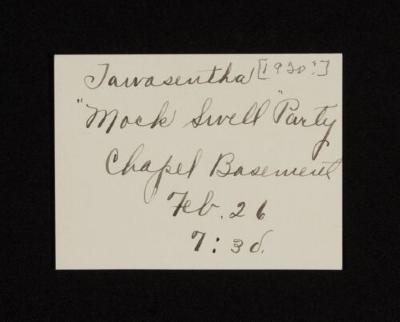 Tawasentha [1920?]
"Mock Swell" Party
Chapel Basement
Feb. 26
7:30.